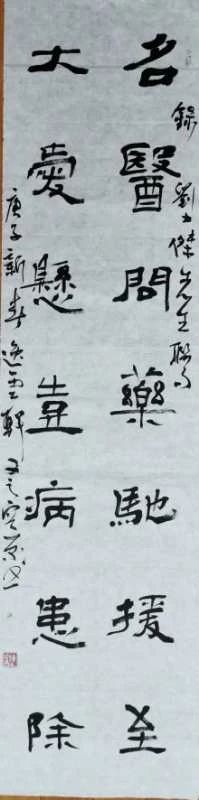 錄劉傑先生聯句
名醫問藥馳援至
大愛懸壺病患除
庚子新春逸雲軒